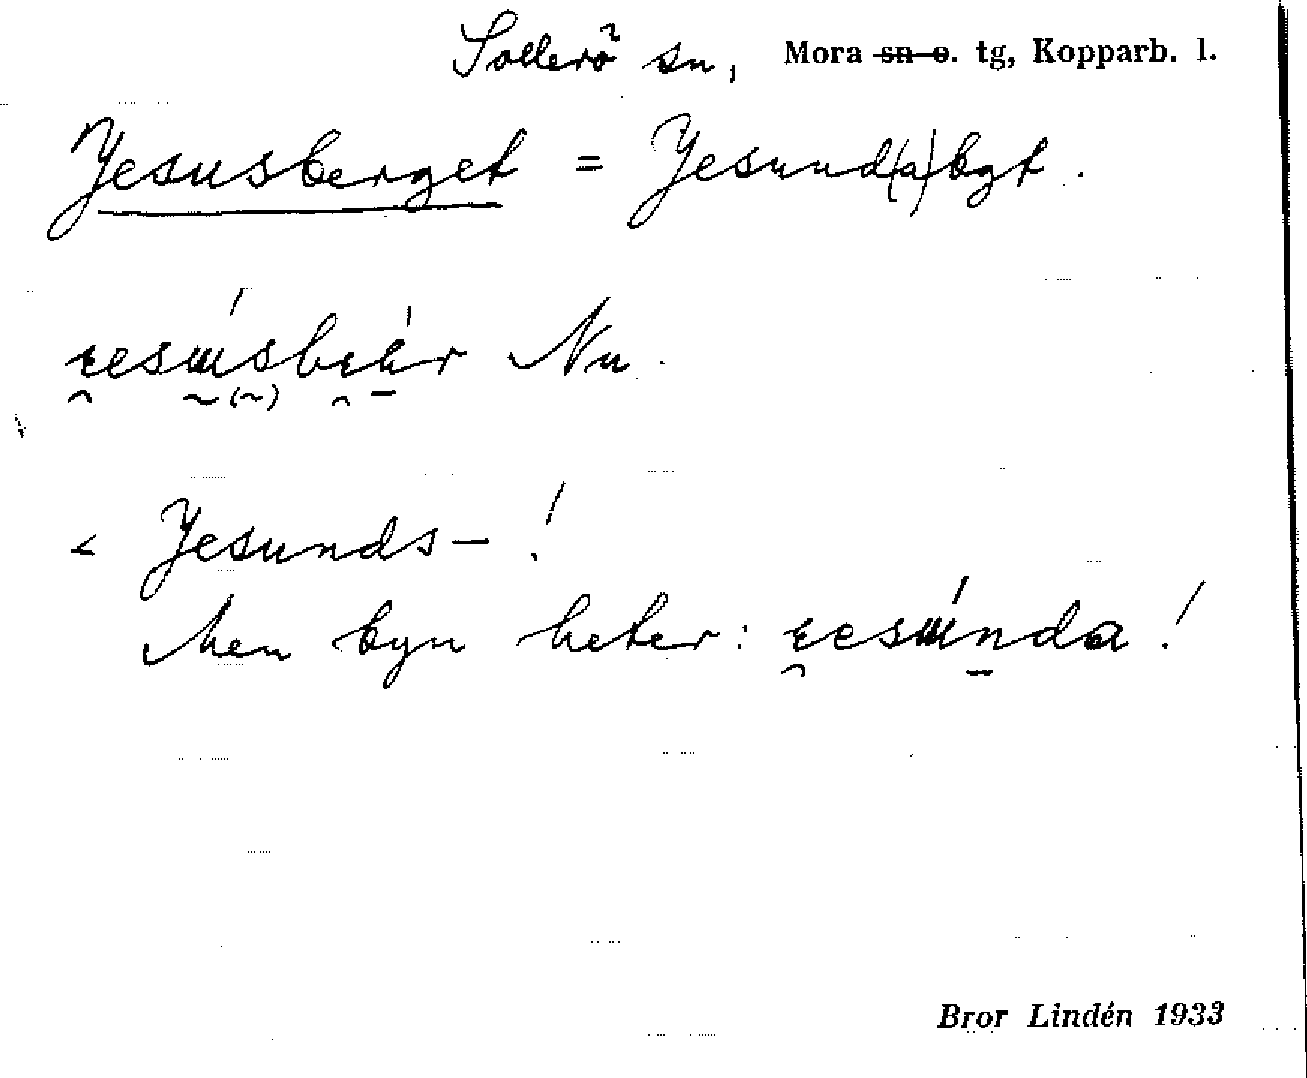 Sollerö sn, Mora sn o. tg, Kopparb. l.
Jesusberget = Jesund(a)bgt.
Nu.
< Jesunds- !
Men byn heter: !
Bror Lindén 1933